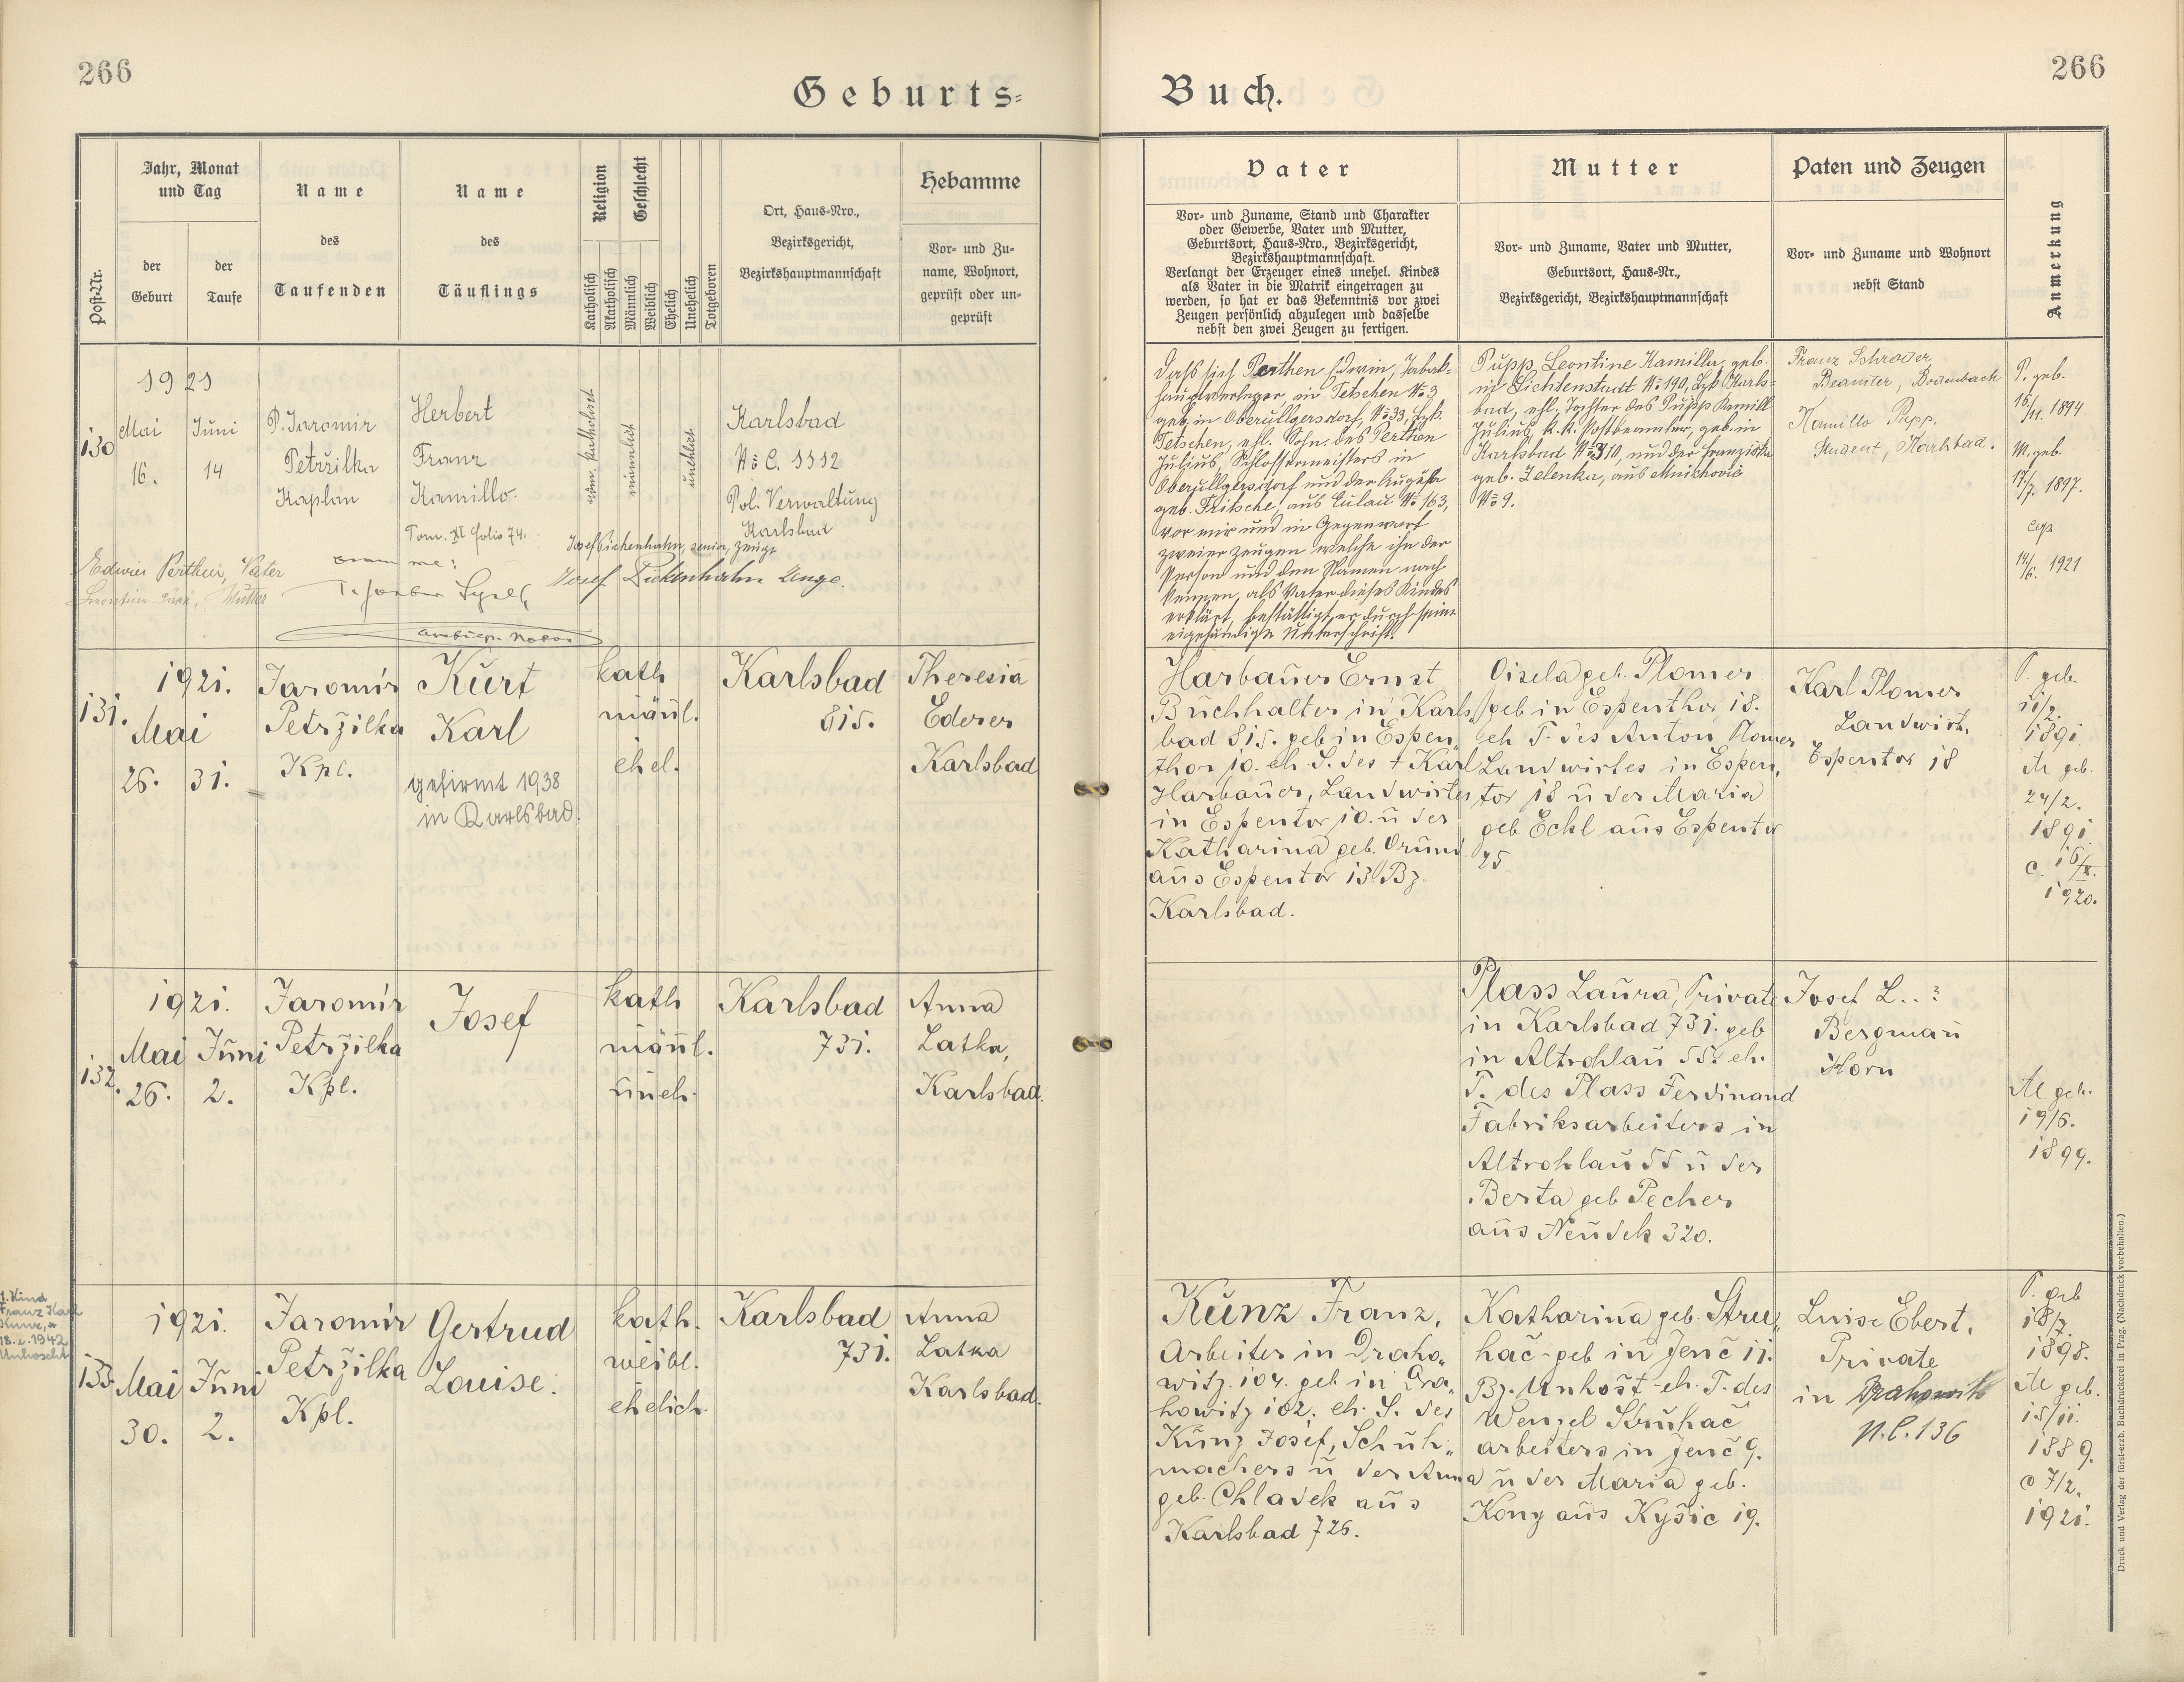 266
266
Geburts=
Buch.
Post-Nr.
Jahr, Monat
und Tag
der
Geburt
der
Taufe
Name
des
Taufenden
Name
des
Täuflings
Religion
Katholisch
Akatholisch
Geschlecht
Männlich
Weiblich
Ehelich
Unehelich
Totgeboren
Ort, Haus=Nro.,
Bezirksgericht,
Bezirkshauptmannschaft
Hebamme
Vor= und Zu=
name, Wohnort,
geprüft oder un=
geprüft
Vater
Vor= und Zuname, Stand und Charakter
oder Gewerbe, Vater und Mutter,
Geburtsort, Haus=Nro., Bezirksgericht,
Bezirkshauptmannschaft.
Verlangt der Erzeuger eines unehel. Kindes
als Vater in die Matrik eingetragen zu
werden, so hat er das Bekenntnis vor zwei
Zeugen persönlich abzulegen und dasselbe
nebst den zwei Zeugen zu fertigen.
Mutter
Vor= und Zuname, Vater und Mutter,
Geburtsort, Haus=Nr.,
Bezirksgericht, Bezirkshauptmannschaft
Paten und Zeugen
Vor= und Zuname und Wohnort
nebst Stand
Anmerkung
130
1921
Mai
16.
Juni
14
P. Jaromir
Petržilka
Kaplan
Herbert
Franz
Kamillo.
Tom. XI folio 74.
röm. katholisch
männlich
unehlich
Karlsbad
No C. 1112
Pol. Verwaltung
Karlsbad
Edwin Perthen, Vater
Mutter
coram me:
Josef Pickenhahn, senior, Zeuge
Josef Pickenhahn Zeuge.
Dass sich Perthen Edwin, Tabak=
hauptverleger, in Tetschen No 3
geb. in Oberullgersdorf, No 33, Bzk.
Tetschen, ehl. Sohn des Perthen
Julius, Schlossermeisters in
Oberullgersdorf und der Augusta
geb. Fritsche, aus Eulau No 163,
vor mir und in Gegenwart
zweier Zeugen welche ihn der
Person und dem Namen nach
kennen, als Vater dieses Kindes
erklärt, bestättigt er durch seine
eigehändige Unterschrift.
Pupp, Leontine Kamilla, geb.
in Lichtenstadt No 190, Bzk Karls=
bad, ehl. Tochter des Pupp Kamill
Julius, k.k. Postbeamter, geb. in
Karlsbad No 310, und der Franziska
geb. Zelenka, aus Mnichovic
No 9.
Franz Schrötter
Beamter, Bodenbach
Kamillo Pupp,
Student, Karlsbad.
P. geb.
16/11. 1894
M. geb.
17/7. 1897.
cop
14/6. 1921
131.
1921.
Mai
26. 31.
Jaromír
Petržilka
Kpl.
Kurt
Karl
gefirmt 1938
in Karlsbad.
kath
mänl.
ehel.
Karlsbad
815.
Theresia
Ederer
Karlsbad
Harbauer Ernst
Buchhalter in Karls„
bad 815. geb in Espen„
thor 10. eh. S. des † Karl
Harbauer, Landwirtes
in Espentor 10. u der
Katharina geb. Grünn.
aus Espentor 13 Bz.
Karlsbad.
Gisela geb. Plomer
geb in Espenthor 18.
eh T. des Anton Plomer
Landwirtes in Espen„
tor 18 u der Maria
geb Eckl aus Espentor
25
Karl Plomer
Landwirt,
Espentor 18
P. geb.
11/2.
1891
M geb.
24/2.
1891
c. 16/X.
1920.
132.
1921.
Mai
26.
Juni
2.
Jaromír
Petržilka
Kpl.
Josef
kath
mänl.
uneh.
Karlsbad
731.
Anna
Latka,
Karlsbad.
Plass Laura, Private
in Karlsbad 731. geb
in Altrohlau 55. eh.
T. des Plass Ferdinand
Fabriksarbeiters in
Altrohlau 55 u der
Berta geb Pecher
aus Neudek 320.
Josef L..?
Bergmann
Horn
M geb.
19/6.
1899.
1. Kind
Franz Karl
18.2.1942
Unhoscht
133.
1921.
Mai
30.
Juni
2.
Jaromír
Petržilka
Kpl.
Gertrud
Louise.
kath.
weibl.
ehelich.
Karlsbad
731.
Anna
Latka
Karlsbad.
Kunz Franz,
Arbeiter in Draho„
witz. 104. geb in Dra„
howitz 102. eh. S. des
Kunz Josef, Schuh„
machers u der Anna
geb. Chladek aus
Karlsbad 726.
Katharina geb. Stru„
hač geb in Jenč 11.
Bz. Unhošt eh. T. des
Wenzel Struhač
arbeiters in Jenč 9.
u der Maria geb.
Kony aus Kyšic 19.
Luise Ebert,
Private
in Drahowitz
N.C. 136
P. geb
18/7.
1898.
M geb.
15/11.
1889.
c 7/2.
1921.
Druck und Verlag der fürst-erzb. Buchdruckerei in Prag. (Nachdruck vorbehalten.)